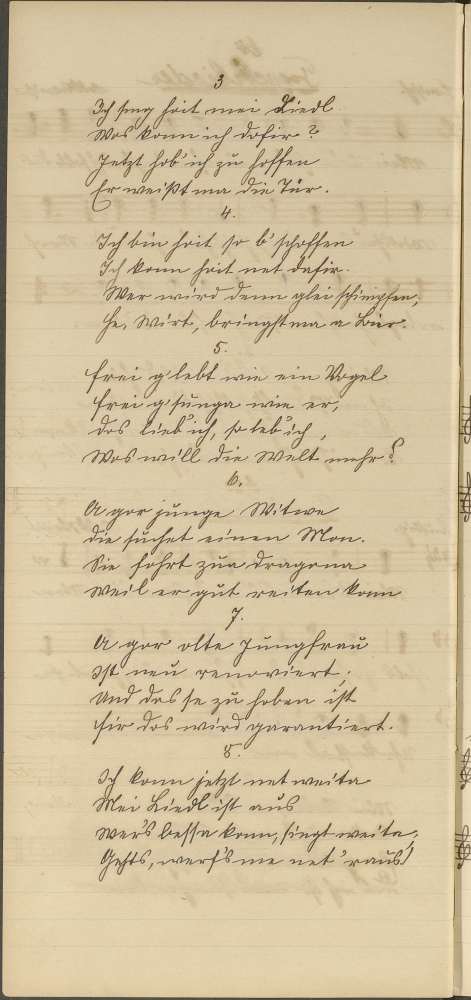 3
Ich sing heit mei Liedl
Wos konn ich dofir?
Jetzt hob' ich zu hoffen
Er weißt ma die Tür.
4.
Ich bin heit so b'schoffen
Ich konn heit net dafir.
Wer wird denn glei schimpfen,
He, Wirt, bringst ma a Bier.
5.
Frei g'lebt wie ein Vogel
Frei g'sunga wie er,
dos lieb' ich, so leb' ich,
Wos will die Welt mehr?
6.
A gor junge Witwe
die suchet einen Mon.
Sie fohrt zua dragona
weil er gut reiten konn
7.
A gor olte Jungfrau
ist neu renoviert,
Und das se zu hoben ist
Fir dos wird garantiert.
8.
Ich konn jetzt net weita
Mei Liedl ist aus
Wer's bessa konn, singt weita,
Gehts, werf's me net 'raus!